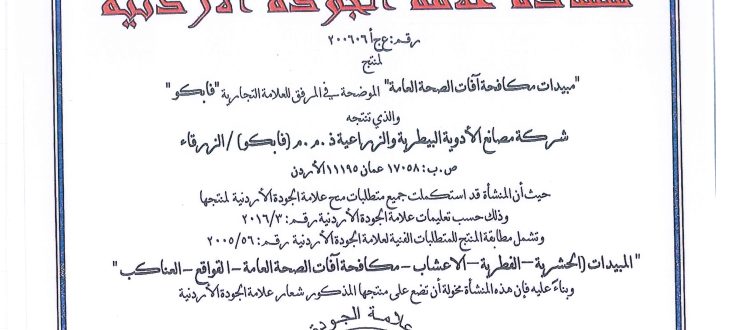 شهادة علامة الجودة الأردنية
رقم: ع ج أ ٢٠٠٦٠٦
لمنتج
"مبيدات مكافحة آفات الصحة العامة" الموضحة في المرفق للعلامة التجارية "فابكو"
والذي تنتجه
شركة مصانع الأدوية البيطرية والزراعية ذ.م.م (فابكو) / الزرقاء
ص.ب: ١٧٠٥٨ عمان ١١١٩٥ الأردن
حيث أن المنشأة قد استكملت جميع متطلبات منح علامة الجودة الأردنية لمنتجها
وذلك حسب تعليمات علامة الجودة الأردنية رقم: ٢٠١٦/٣
وتشمل مطابقة المنتج للمتطلبات الفنية لعلامة الجودة الأردنية رقم: ٢٠٠٥/٥٦
"المبيدات (الحشرية – الفطرية – الاعشاب – مكافحة آفات الصحة العامة – القواقع – العناكب"
وبناءً عليه فإن هذه المنشأة مخولة أن تضع على منتجها المذكور شعار علامة الجودة الأردنية
علامة الجودة